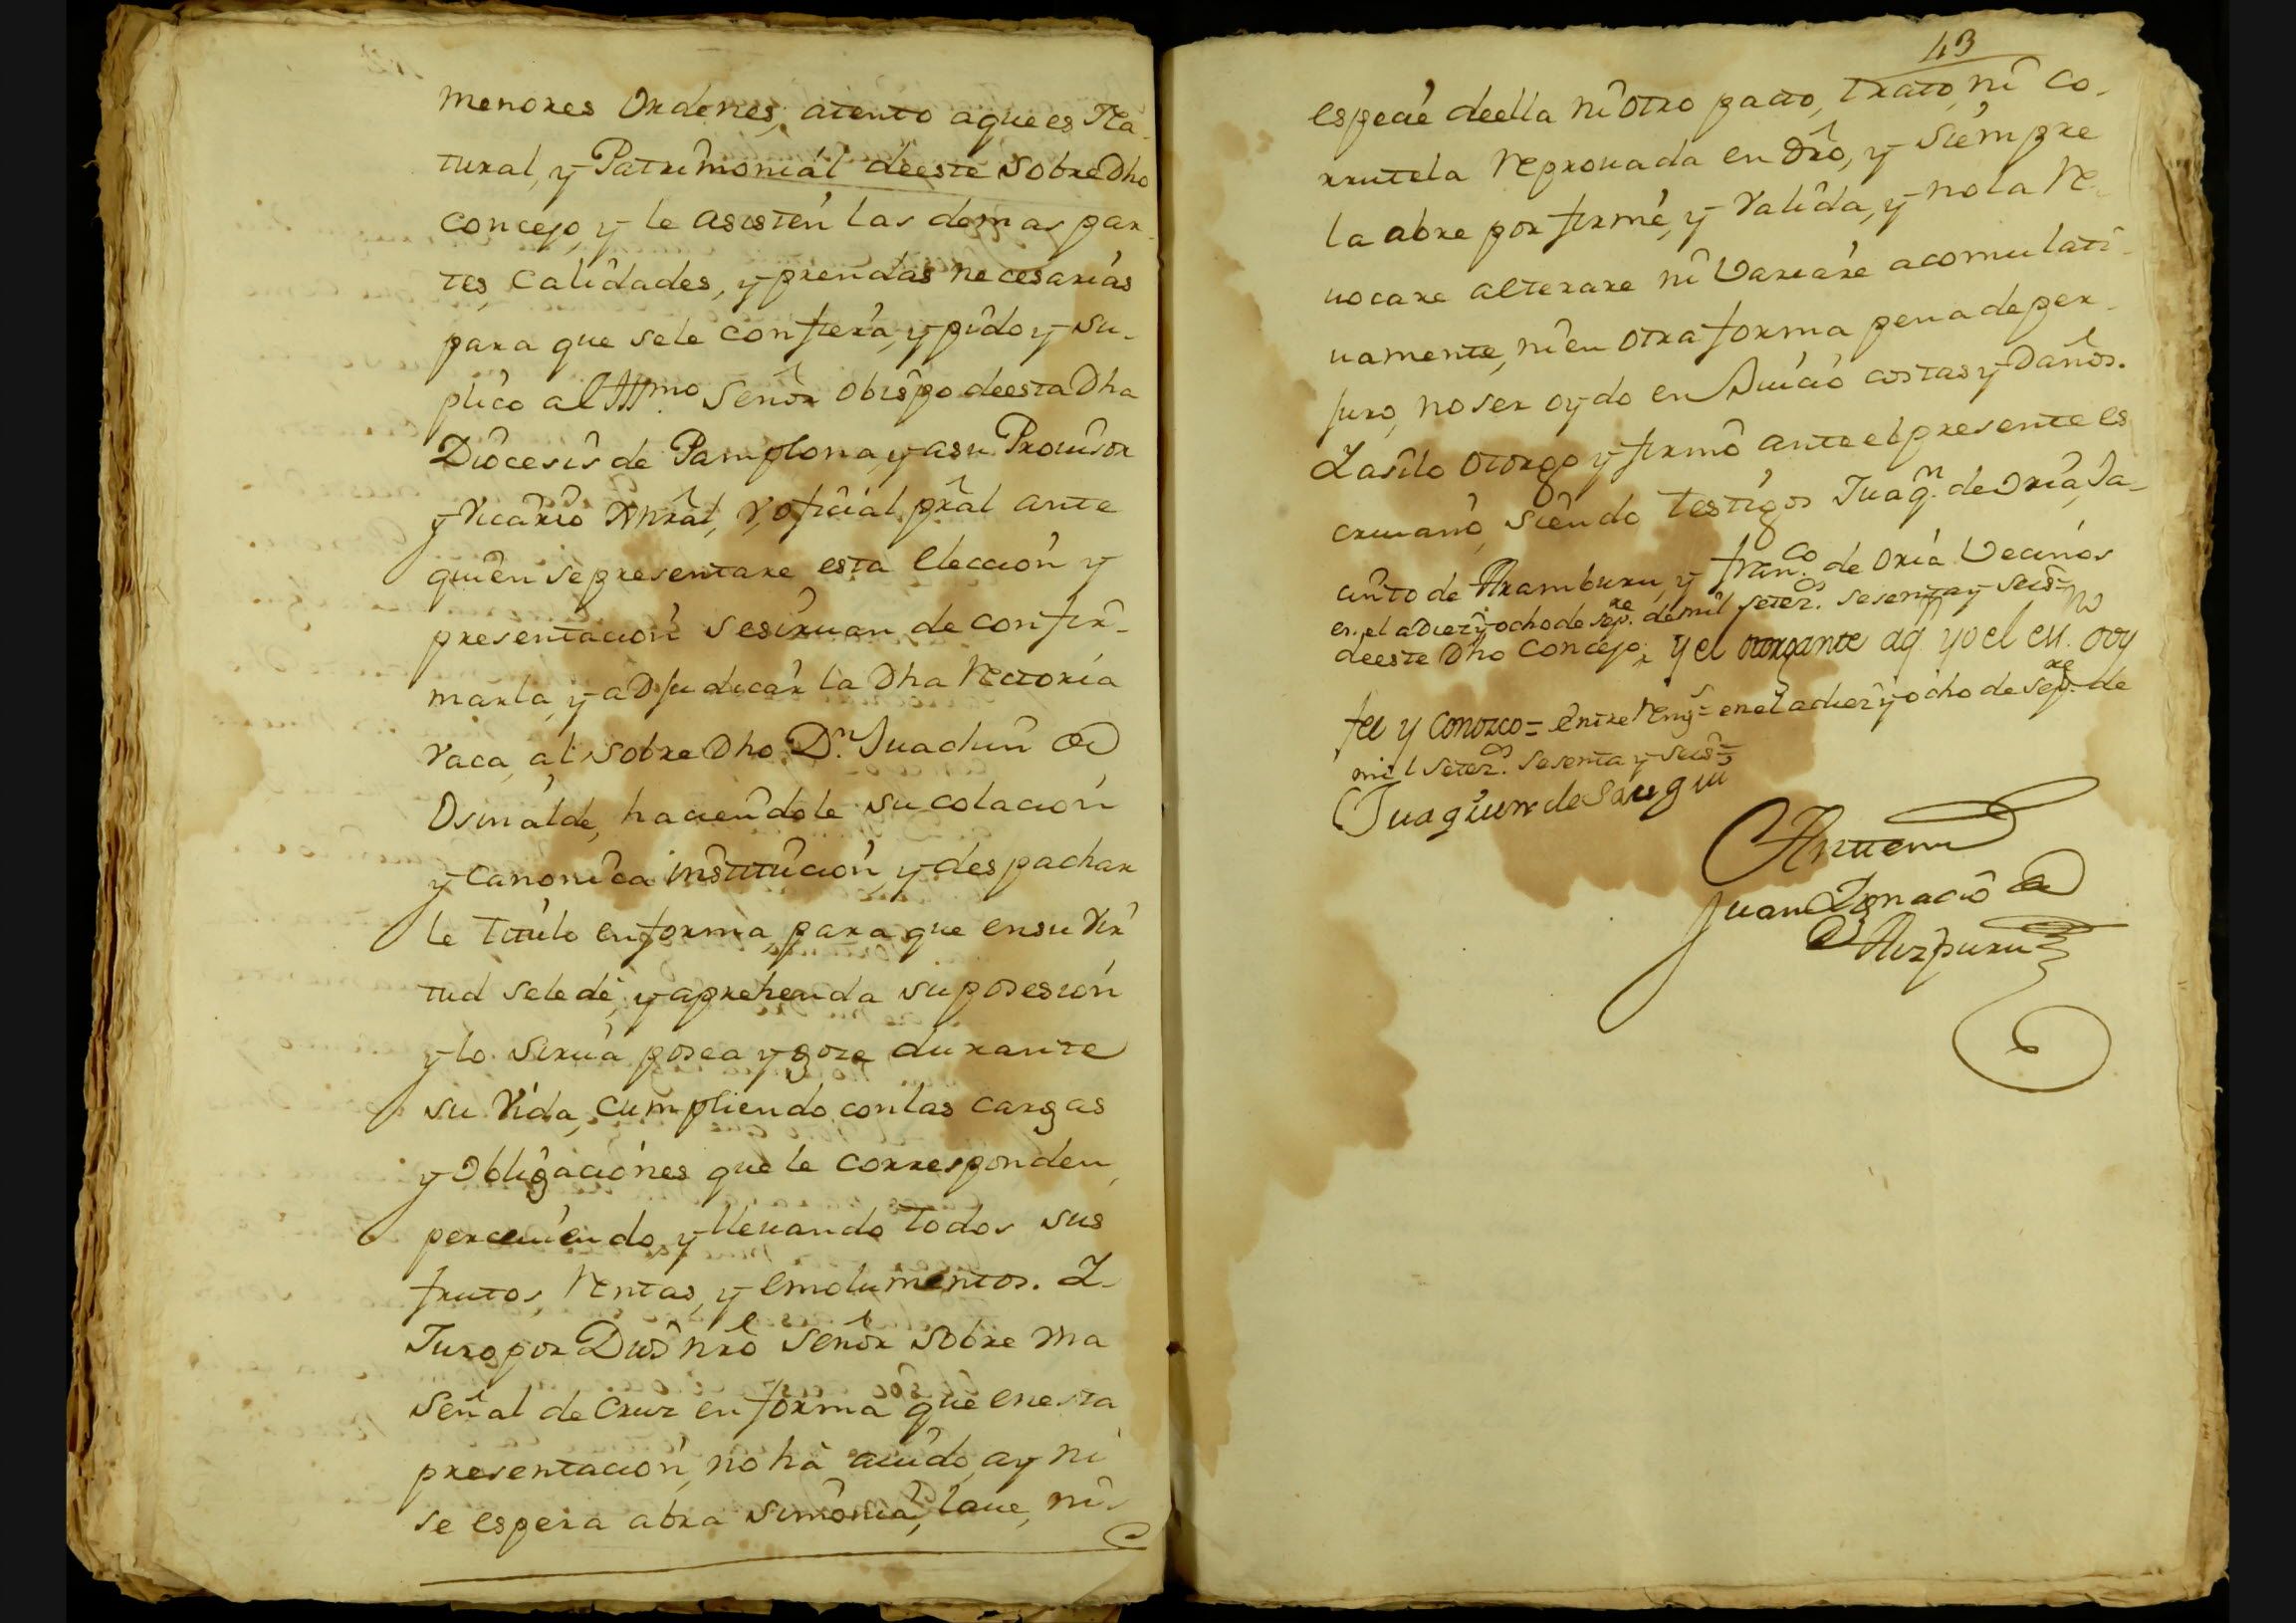 menores Ordenes, atento aque es Na-
tural, y Patrimonial deeste sobre Dho
Concejo, y le asisten las demas par-
tes, Calidades, y prendas necesarias
para que sele confiera, y pido y su-
plico al Illmo. Señor Obispo deesta Dha
Diocesis de Pamplona, y asu Prouisor
y Vicario Gnral, y oficial pral ante
quien sepresentare esta eleccion y
presentacion sesiruan de confir-
marla, y adjudicar la Dha Rectoria
Vaca, al sobre Dho Dn. Juachin de
Osinalde, haciendole su colacion
y Canonica institucion, y despachar
le titulo enforma, para que ensu Vir
tud sele dé, y aprehenda suposesion
y lo sirua posea y goze durante
su Vida, cumpliendo conlas cargas
y Obligaciones que le corresponden,
perciuiendo, y lleuando todos sus
frutos, Rentas, y emolumentos. Y
Juro por Dios nro Señor sobre vna
señal de Cruz en forma que enesta
presentacion, no há auido, ay ni
se espera abra simonia, laue, ni
43
especie deella ni otro pacto, trato, ni co-
rrutela Reprouada en Dro, y siempre
la abre por firme, y Valida, y no la Re-
uocare alterare ni Variare acomulati-
uamente, ni en otra forma pena de per-
juro, no ser oydo en Juicio costas y Daños.
Y asilo otorgo y firmó ante el presente es
criuano, siendo testigos Juaqn. de Oria, Ja-
cinto de Aramburu, y Franco. de Oria Vecinos
en.el a Diez y ocho de Sepre. de mil setezos. sesenta y seis=
deeste Dho Concejo, y el otorgante aq. yo el esno. doy
fee y Conozco= entre Rengs= en el a diez y ocho de Sepre. de
mil setezos. sesenta y seis=
Juaqiun de Saugui
Antemi
Juan Ignacio de
Aizpuru